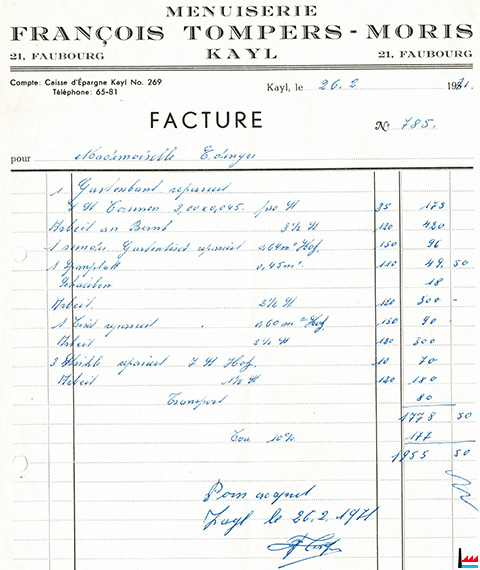 MENUISERIE
FRANÇOIS TOMPERS - MORIS
21, FAUBOURG KAYL 21, FAUBOURG
Compte: Caisse d'Épargne Kayl No. 269
Téléphone: 65-81
Kayl, le 26.2 1971.
FACTURE
№ 785.
pour Mademoiselle
1 Gartenbank repariert
3,00x0,045. pro St 35 175
Arbeit an Bank 3½ St 120 420
1 repariert 0,64m² Hof. 150 96
1 Spanplatt 0,45m². 110 49. 50
Schrauben 18
Arbeit. 2½ St. 120 300 -
1 Tisch repariert 0,60m² Hof 150 90 -
Arbeit 2½ St 120 300
3 Stühle repariert 7 St Hof. 10 70
Arbeit 1½ St 120 180
Transport 80
1778 50
10% 177
1955 50
Pour acquit
Kayl le 26.2.1971